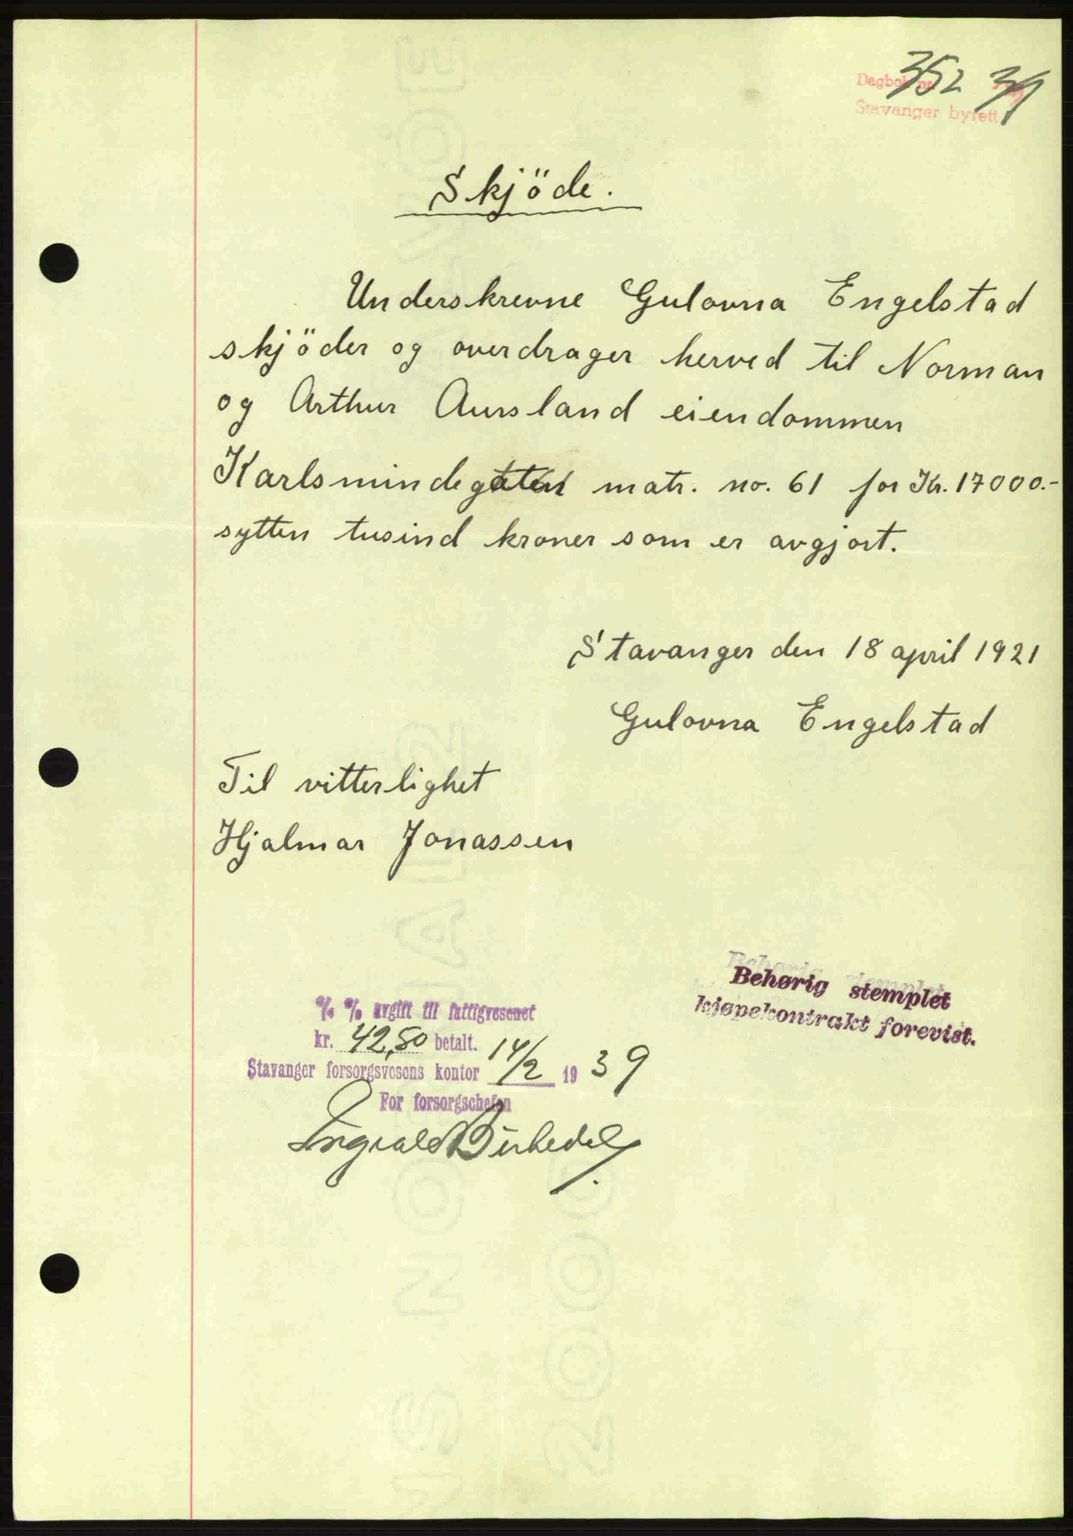 Dagbok nr. 352 39
Stavanger byrett
Skjöde.
Underskrevne Gulovna Engelstad
skjöder og overdrager herved til Norman
og Arthur Aursland eiendommen
Karlsmindegaten matr. no. 61 for Kr. 17000.-
sytten tusind kroner som er avgjort.
Stavanger den 18 april 1921
Gulovna Engelstad
Til vitterlighet
Hjalmar Jonassen
Behørig stemplet
kjøpekontrakt forevist.
avgift til fattigvesenet
kr. 42,50 betalt.
Stavanger forsorgsvesens kontor 14/2 1939
For forsorgschefen